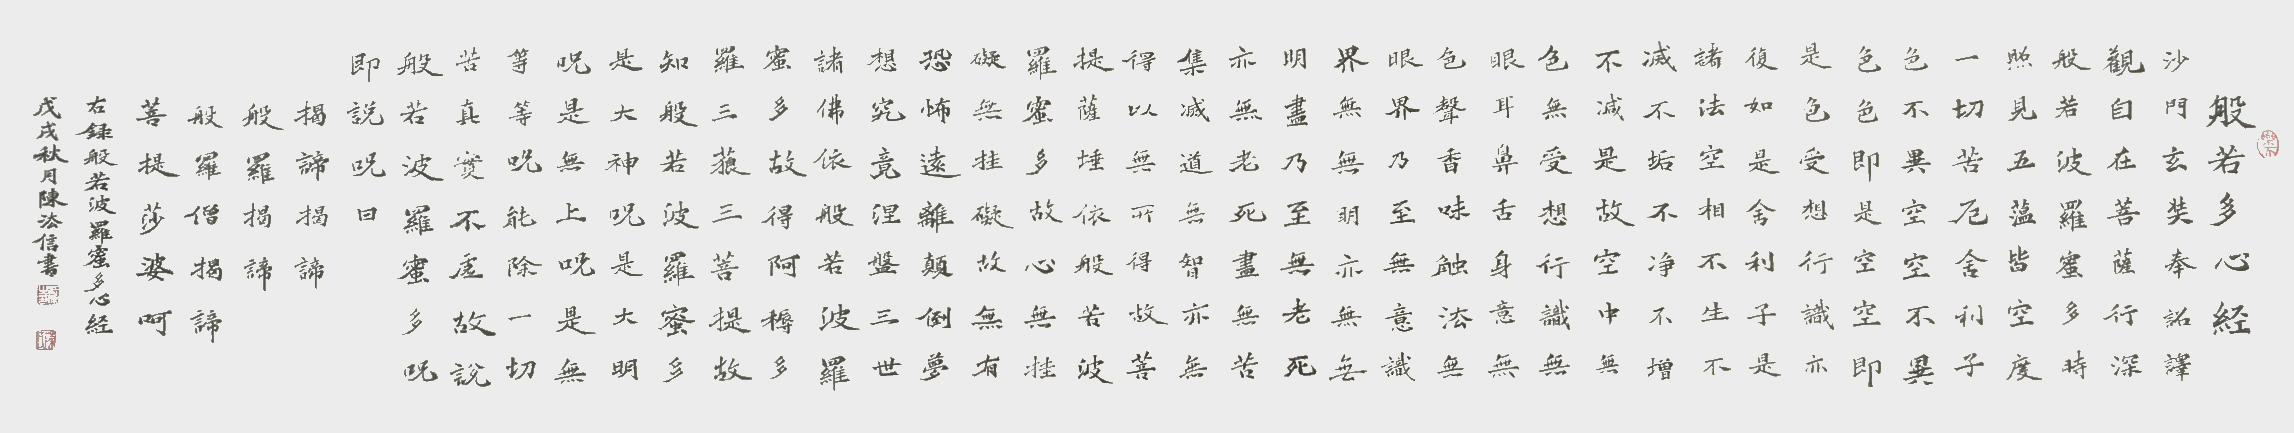 般若多心経
沙門玄奘奉詔譯
觀自在菩薩行深
般若波羅蜜多時
照見五蕰皆空度
一切苦厄舍利子
色不異空空不異
色色即是空空即
是色受想行識亦
復如是舍利子是
諸法空相不生不
滅不垢不净不增
不減是故空中無
色無受想行識無
眼耳鼻舌身意無
色聲香味触法無
眼界乃至無意識
界無無明亦無無
明盡乃至無老死
亦無老死盡無苦
集滅道無智亦無
得以無所得故菩
提薩埵依般若波
羅蜜多故心無挂
礙無挂礙故無有
恐怖遠離顛倒夢
想究竟涅盤三世
諸佛依般若波羅
蜜多故得阿耨多
羅三藐三菩提故
知般若波羅蜜多
是大神呪是大明
呪是無上呪是無
等等呪能除一切
苦真實不虛故說
般若波羅蜜多呪
即説呪曰
揭諦揭諦
般羅揭諦
般羅僧揭諦
菩提莎婆呵
右録般若波羅蜜多心経
戊戌秋月陳法信書